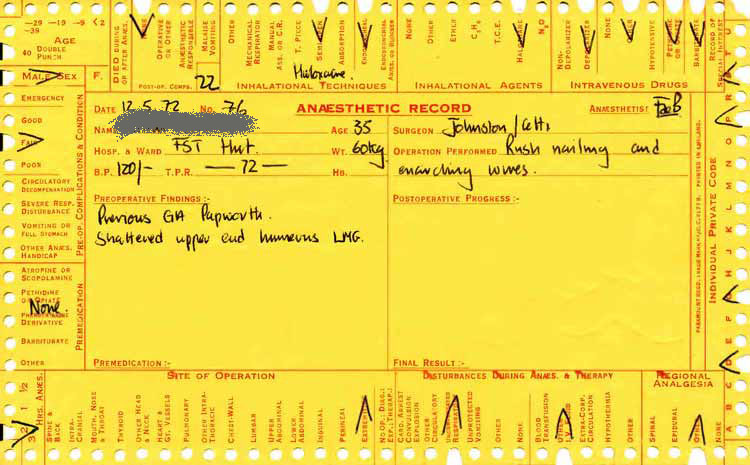 –29 –19 –9 <2
–39
AGE
40 DOUBLE PUNCH
MALE SEX F.
DIED DURING OR AFTER ANÆS.
NONE
OPERATIVE OR OTHER
ANÆSTHETIC RESPONSIBLE
MALAISE VOMITING
OTHER
POST-OP. COMPS.
22
MECHANICAL RESPIRATOR
MANUAL ASS. OR C.R.
T. PIECE
ABSORPTION
INHALATIONAL TECHNIQUES
NONE
OTHER
ETHER
T.C.E.
N₂O
INHALATIONAL AGENTS
NON-DEPOLARIZER
DEPOLARIZER
NONE
HYPOTENSIVE
INTRAVENOUS DRUGS
RECORD OF SPECIAL INTEREST
DATE 12.5.72 No. 76
ANAESTHETIC RECORD
ANÆSTHETIST
NAME
AGE 35
SURGEON
HOSP. & WARD FST Hut.
WT. 60kg
OPERATION PERFORMED Rush nailing and
B.P. 120/- T.P.R. — 72 —
HB.
encircling wires.
PREOPERATIVE FINDINGS :-
Previous GA Papworth.
Shattered upper end humerus LMG.
POSTOPERATIVE PROGRESS :-
PREMEDICATION :-
FINAL RESULT :-
EMERGENCY
GOOD
FAIR
POOR
CIRCULATORY DECOMPENSATION
SEVERE RESP. DISTURBANCE
VOMITING OR FULL STOMACH
OTHER ANÆS. HANDICAP
PRE-OP. COMPLICATIONS & CONDITION
ATROPINE OR SCOPOLAMINE
PETHIDINE OR OPIATE
None.
DERIVATIVE
BARBITURATE
OTHER
PREMEDICATION
PRINTED IN ENGLAND.
INDIVIDUAL PRIVATE CODE
3 2 1 ½
HRS. ANÆS.
SITE OF OPERATION
SPINE & BACK
INTRA-CRANIAL
MOUTH, NOSE & THROAT
THYROID
OTHER HEAD & NECK
HEART & GT. VESSELS
PULMONARY
OTHER INTRA-THORACIC
CHEST-WALL
LUMBAR
UPPER ABDOMINAL
LOWER ABDOMINAL
INGUINAL
PERINEAL
EXTREMITIES
DISTURBANCES DURING ANÆS. & THERAPY
CARD. ARREST
CONVULSION
EXPLOSION
OTHER CIRCULATORY
UNPROTECTED VOMITING
OTHER
NONE
BLOOD TRANSFUSION
EXTRA-CORP. CIRCULATION
HYPOTHERMIA
REGIONAL ANALGESIA
SPINAL
EPIDURAL
OTHER
NONE